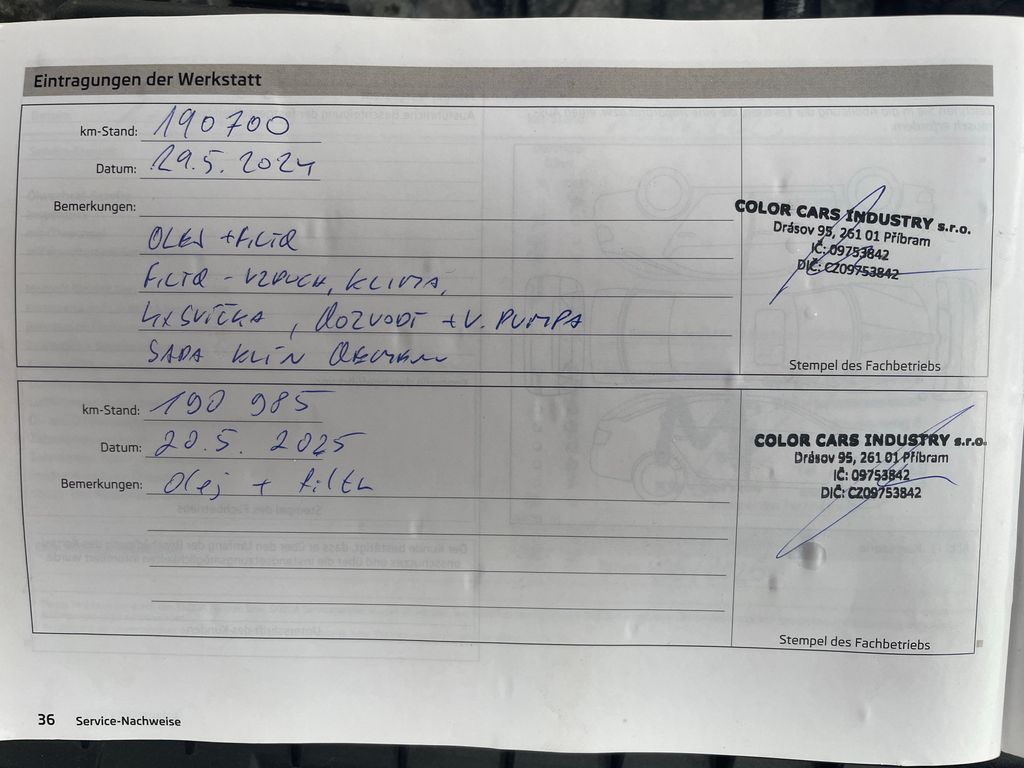 Eintragungen der Werkstatt
km-Stand: 190 700
Datum: 29.5. 2024
Bemerkungen:
OLEJ + FILTR
FILTR - VZDUCH, KLIMA,
4x SVÍČKA, ROZVODY + V. PUMPA
SADA KLÍN ŘEMENU
COLOR CARS INDUSTRY s.r.o.
Drásov 95, 261 01 Příbram
IČ: 09753842
DIČ: CZ09753842
Stempel des Fachbetriebs
km-Stand: 190 985
Datum: 20.5. 2025
Bemerkungen: Olej + filtr
COLOR CARS INDUSTRY s.r.o.
Drásov 95, 261 01 Příbram
IČ: 09753842
DIČ: CZ09753842
Stempel des Fachbetriebs
36 Service-Nachweise